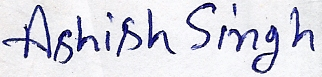 Ashish Singh